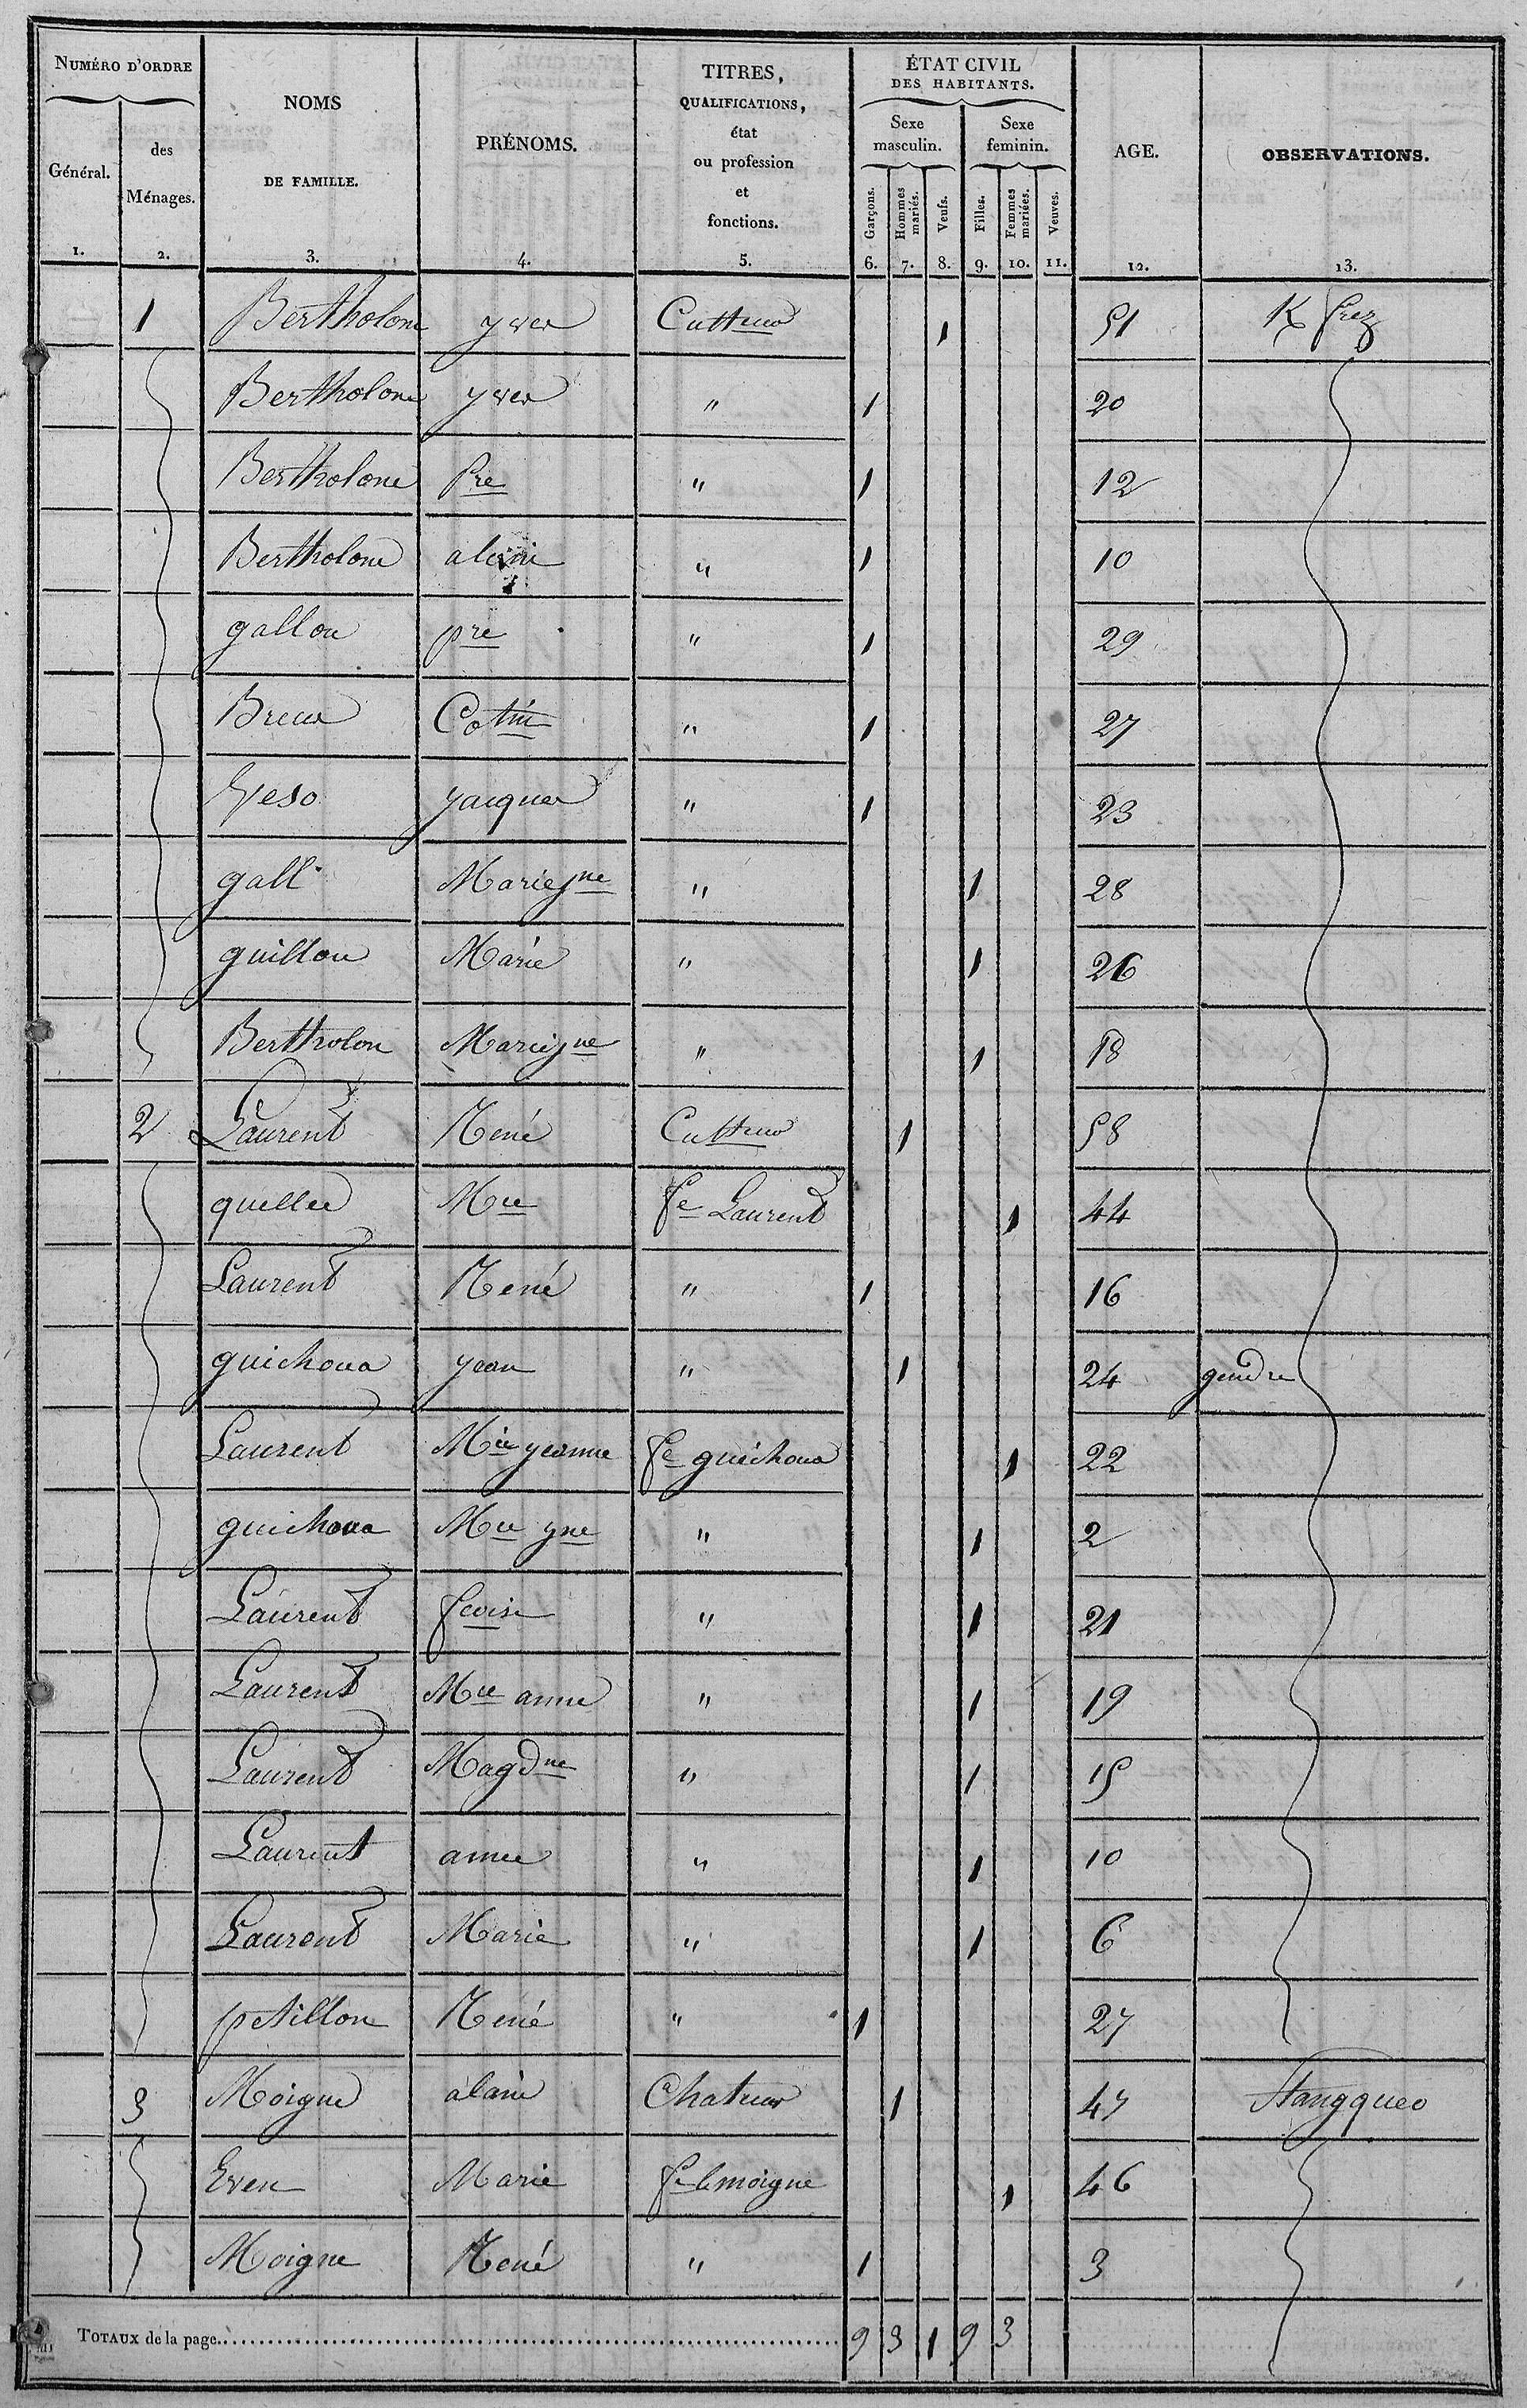 NUMÉRO D'ORDRE | NOMS DE FAMILLE. | PRÉNOMS. | TITRES, QUALIFICATIONS, état ou profession et fonctions. | ÉTAT CIVIL DES HABITANTS. | AGE. | OBSERVATIONS.
Général. | des Ménages. | Sexe masculin. | Sexe feminin.
Garçons. | Hommes mariés. | Veufs. | Filles. | Femmes mariées. | Veuves.
1. | 2. | 3. | 4. | 5. | 6. | 7. | 8. | 9. | 10. | 11. | 12. | 13.
1 | Bertholom | yves | Cultteur | 1 | 51
Bertholom | yves | " | 1 | 20
Bertholome | Pre | " | 1 | 12
Bertholome | alain | " | 1 | 10
gallou | pre | " | 1 | 29
" | 1 | 27
yacques | " | 1 | 23
gall | Mariejne | " | 1 | 28
guillou | Marie | " | 1 | 26
Bertholom | Mariejne | " | 1 | 18
2 | Laurent | René | Cultteur | 1 | 58
quellec | Mie | fe Laurent | 1 | 44
Laurent | René | " | 1 | 16
guichoua | yean | " | 1 | 24 | gendre
Laurent | Mie yeanne | fe guichoua | 1 | 22
guichoua | Mie yne | " | 1 | 2
Laurent | fcoise | " | 1 | 21
Laurent | Mie anne | " | 1 | 19
Laurent | Magdne | " | 1 | 15
Laurent | anne | " | 1 | 10
Laurent | Marie | " | 1 | 6
petillon | René | " | 1 | 27
3 | Moigne | alain | 1 | 47 | Stangqueo
Even | Marie | fe lemoigne | 1 | 46
Moigne | René | " | 1 | 3
TOTAUX de la page | 9 | 3 | 1 | 9 | 3